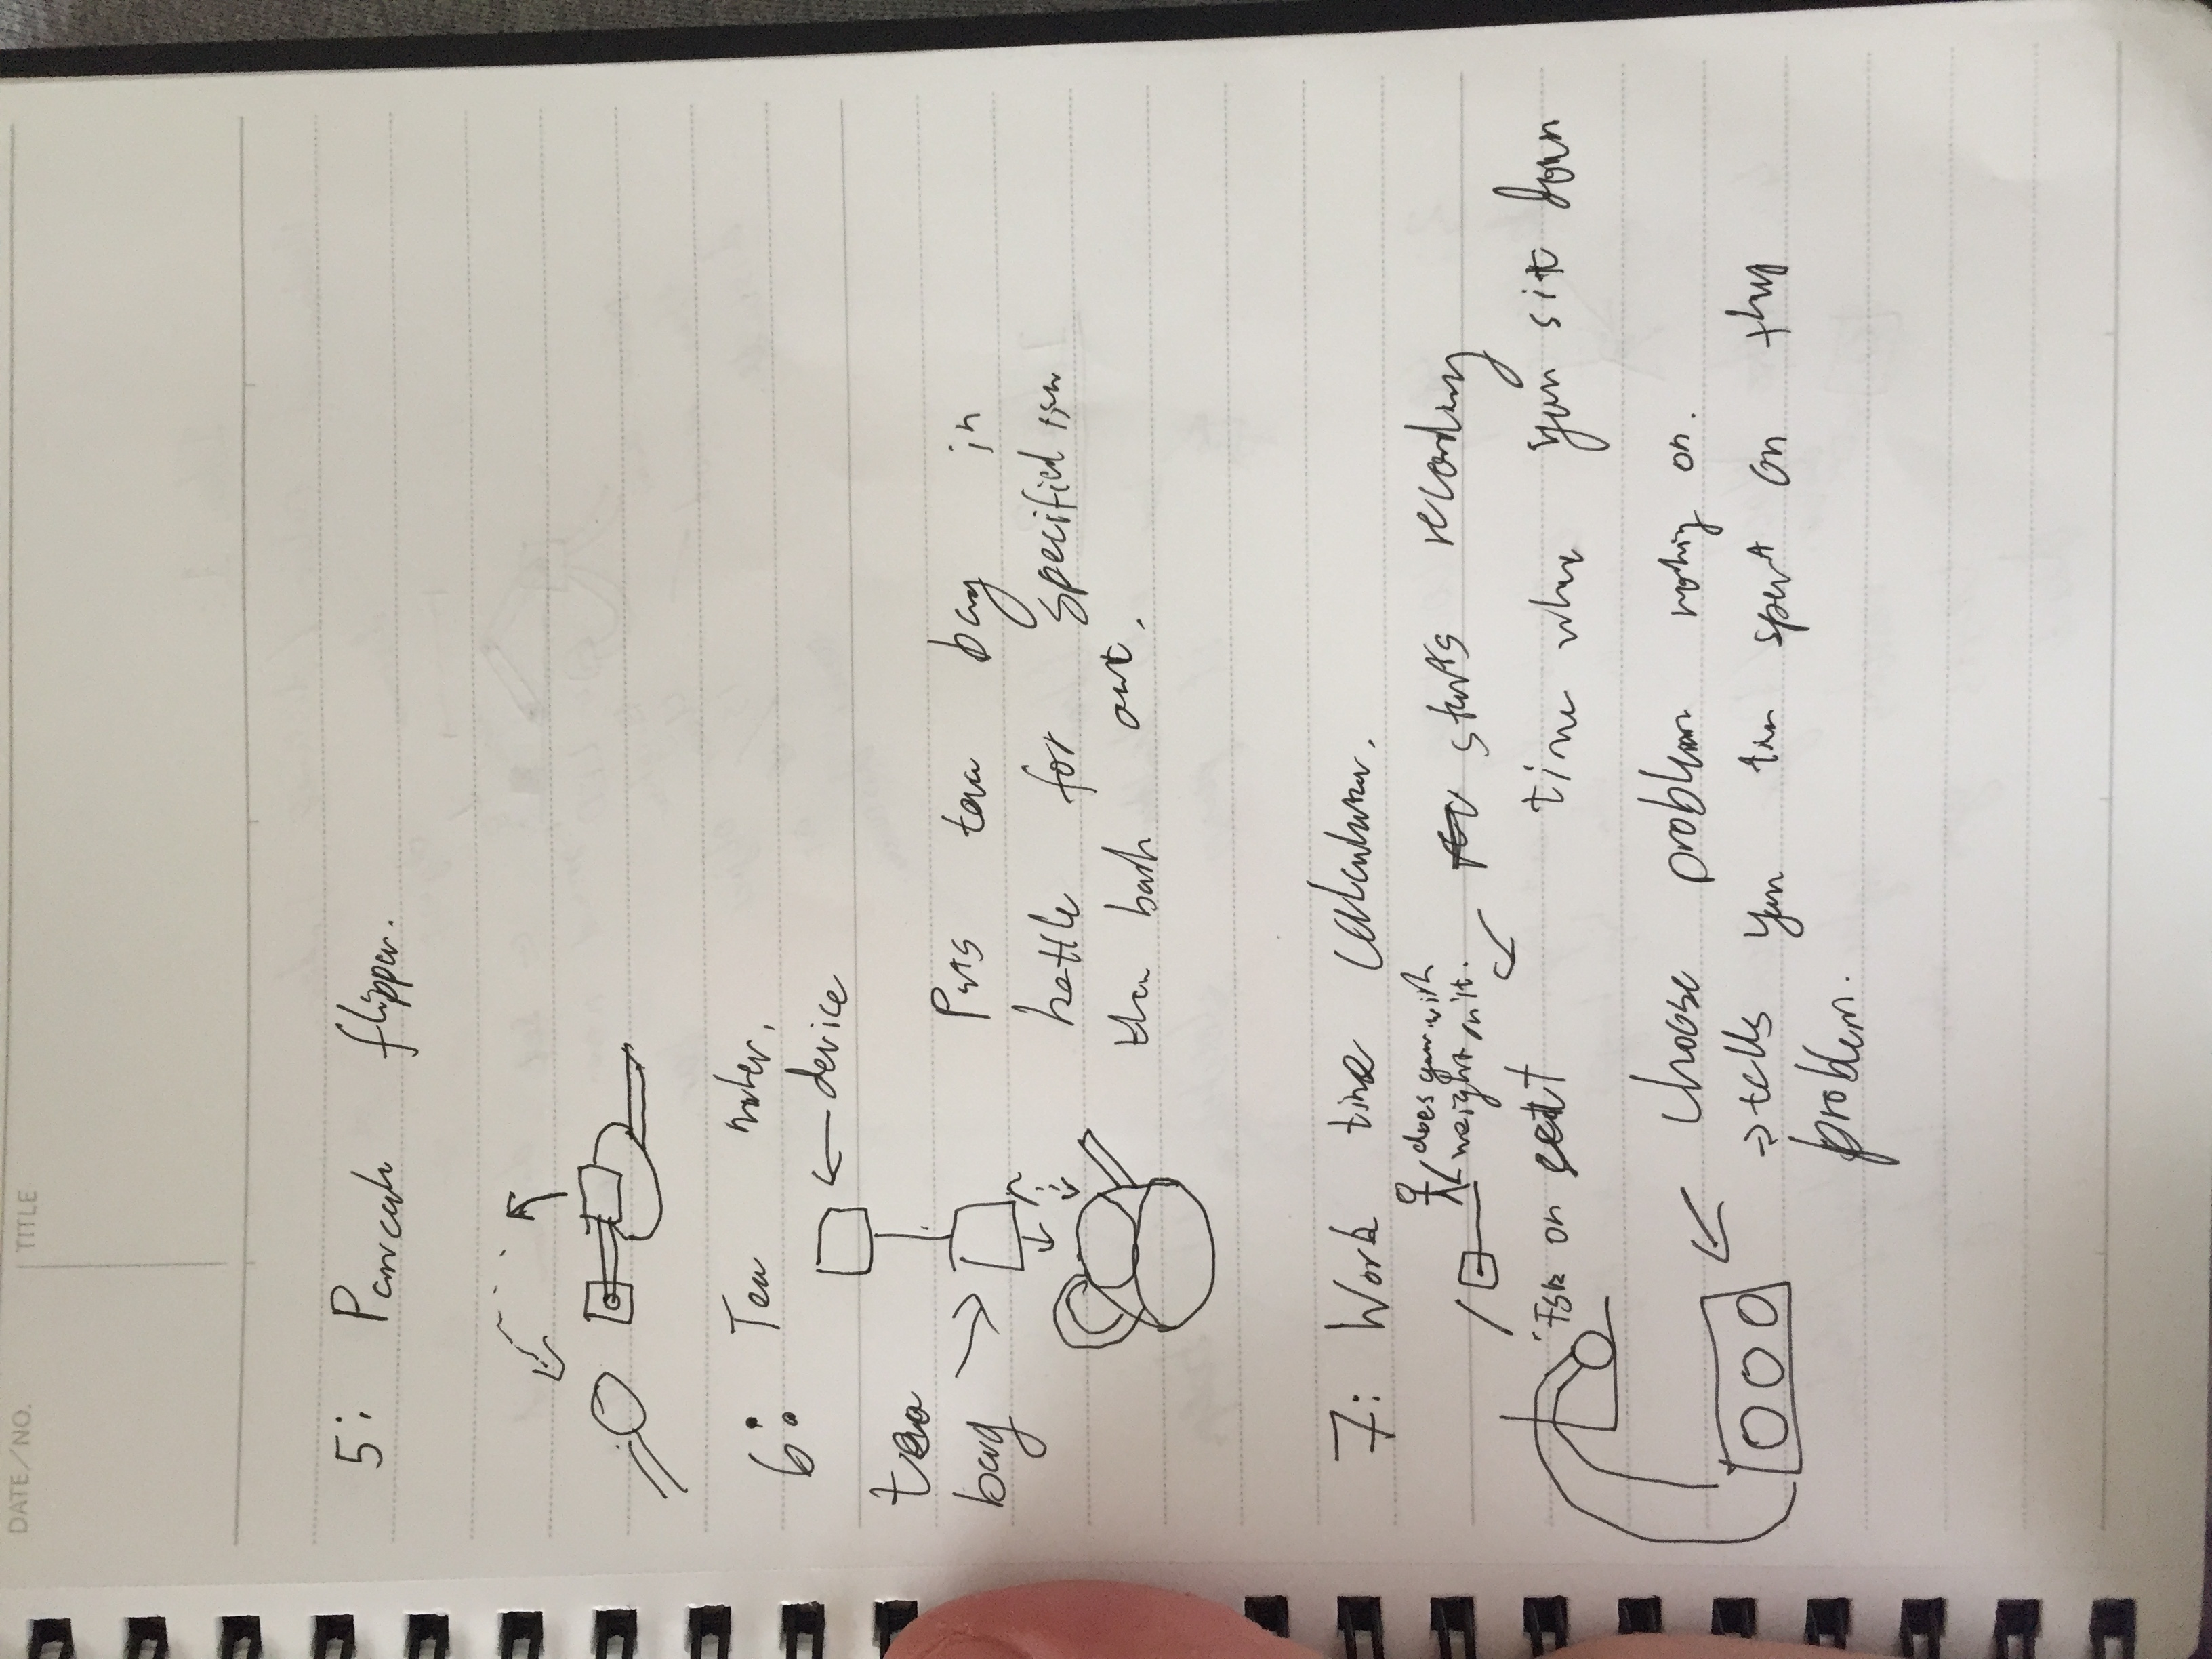 DATE/NO.
TITLE
5: Pancake flipper.
6: Tea maker.
device
tea
bag
Puts tea bag in
kettle for specified time
then back out.
7: Work time calculator.
does you with
weight on it.
starts recording
on seat
time when you sit down
choose problem working on.
→ tells you time spent on
problem.